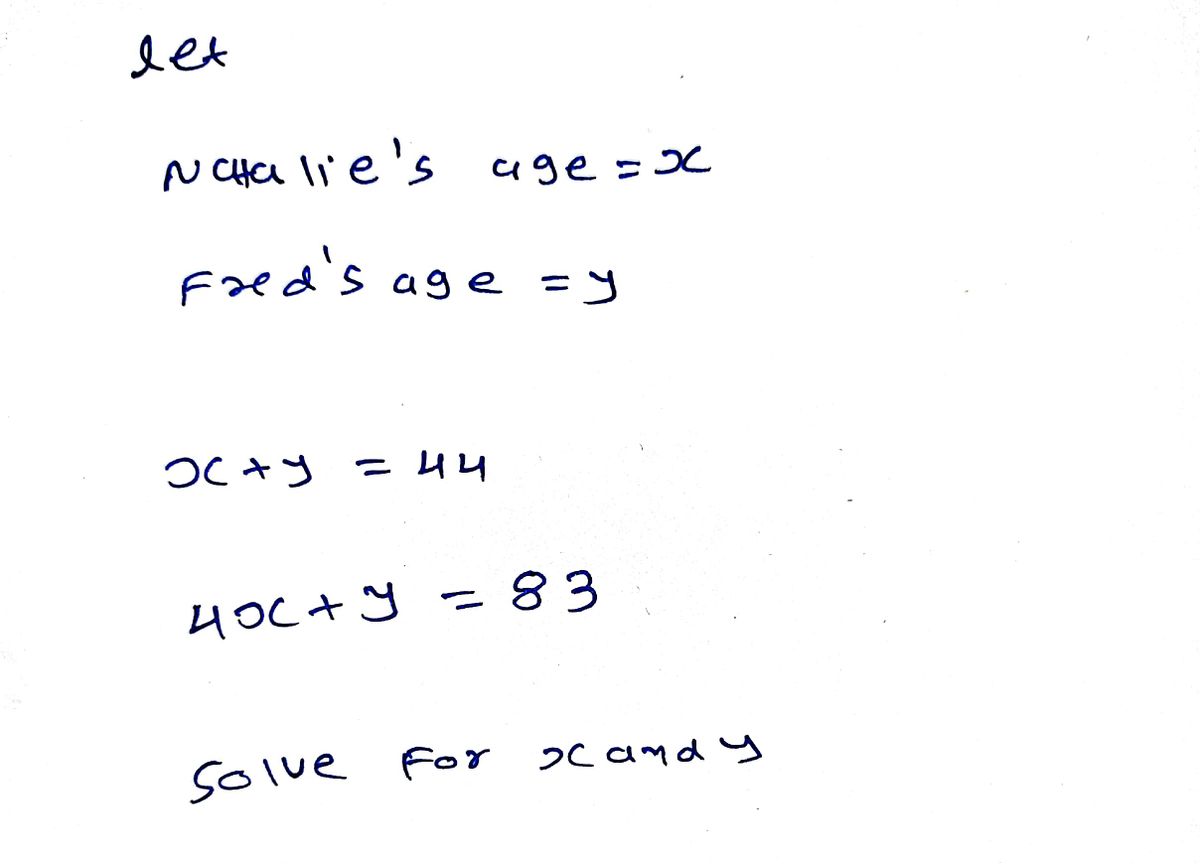 let
Nattalie's age = x
Fred's age = y
x + y = 44
4x + y = 83
Solve For x and y